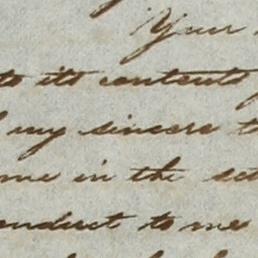 Your
to its contents
my sincere
me in the
conduct to me